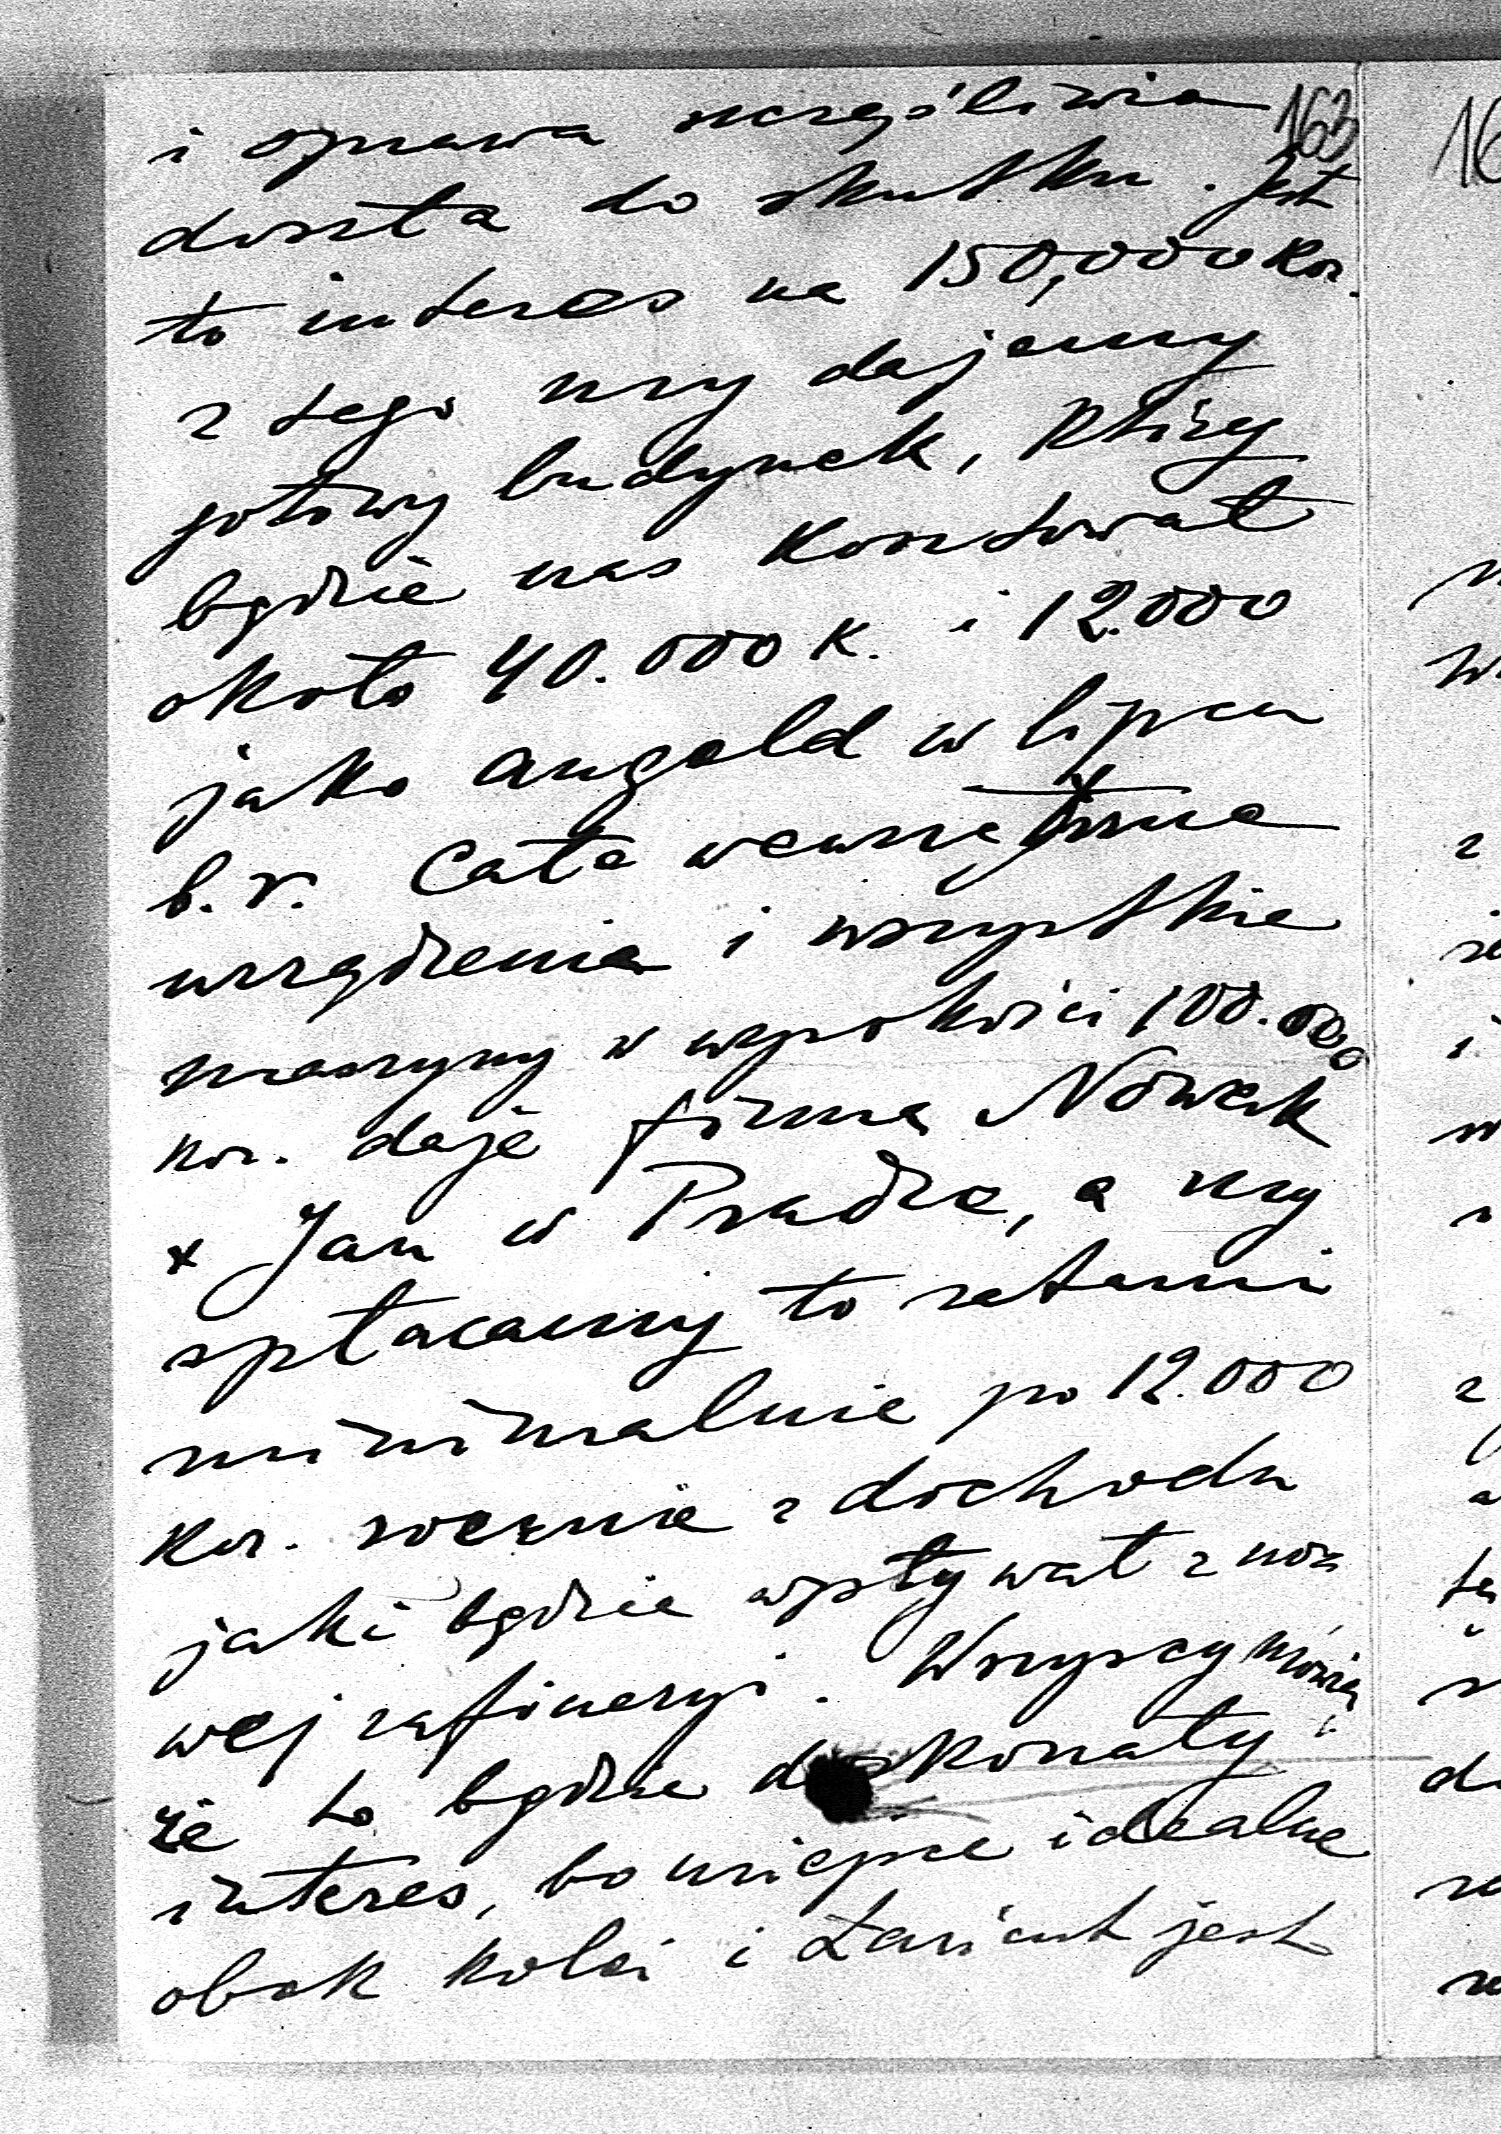 163
i sprawa szczęśliwie
doszła do skutku. Jest
to interes na 150,000 Kor.
z tego my dajemy
gotowy budynek, który
będzie nas kosztował
około 40.000 K. i 12.000
jako angeld w lipcu
b. r. Całe wewnętrzne
urządzenia i wszystkie
maszyny w wysokości 100.000
kor. daje firma Nowak
x Jan w Pradze, a my
spłacamy to ratami
minimalnie po 12.000
Kor. rocznie z dochodu
jaki będzie wpływał z no
wej rafineryi. Wszyscy mówią
że to będzie doskonały
interes, bo miejsce idealne
obok kolei i Łańcut jest